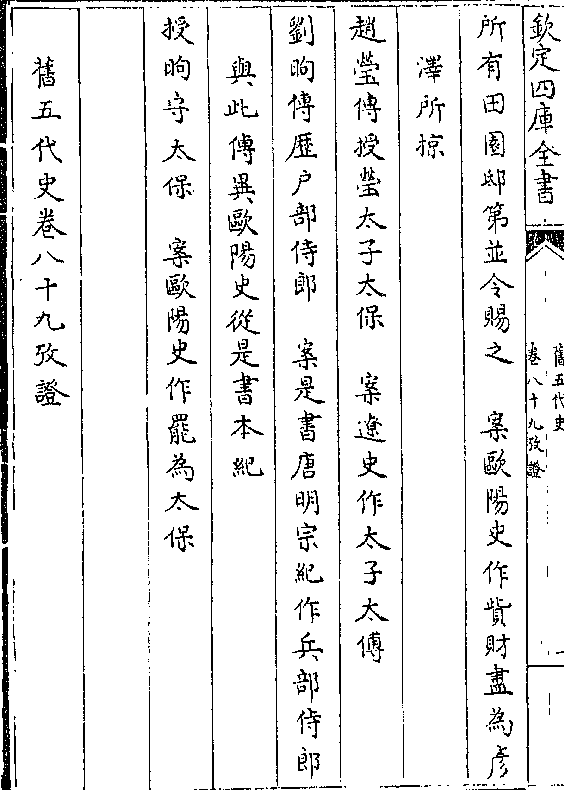 欽定四庫全書
舊五代史
卷八十九攷證
一
所有田園邸第並令賜之　案歐陽史作貲財盡為彦
澤所掠
趙瑩傳授瑩太子太保　案遼史作太子太傅
劉昫傳歷户部侍郎　案是書唐明宗紀作兵部侍郎
與此傳異歐陽史從是書本紀
授昫守太保　案歐陽史作罷為太保
舊五代史卷八十九攷證